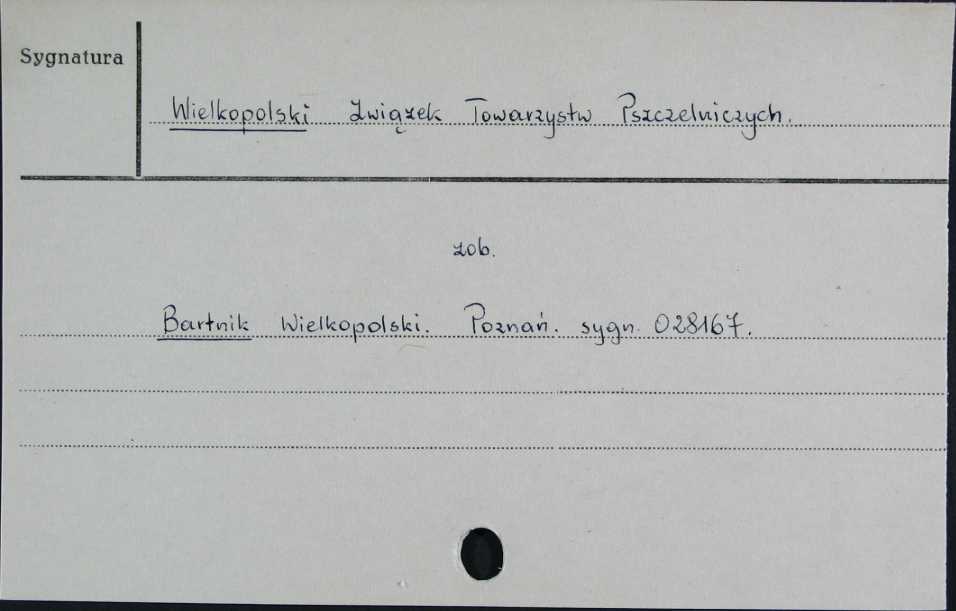 Sygnatura
Wielkopolski Związek Towarzystw Pszczelniczych.
zob.
Bartnik Wielkopolski. Poznań. sygn. 028167.